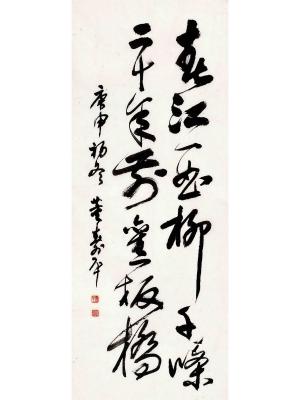 春江一曲柳千條
二十年前舊板橋
庚申初冬 董寿平